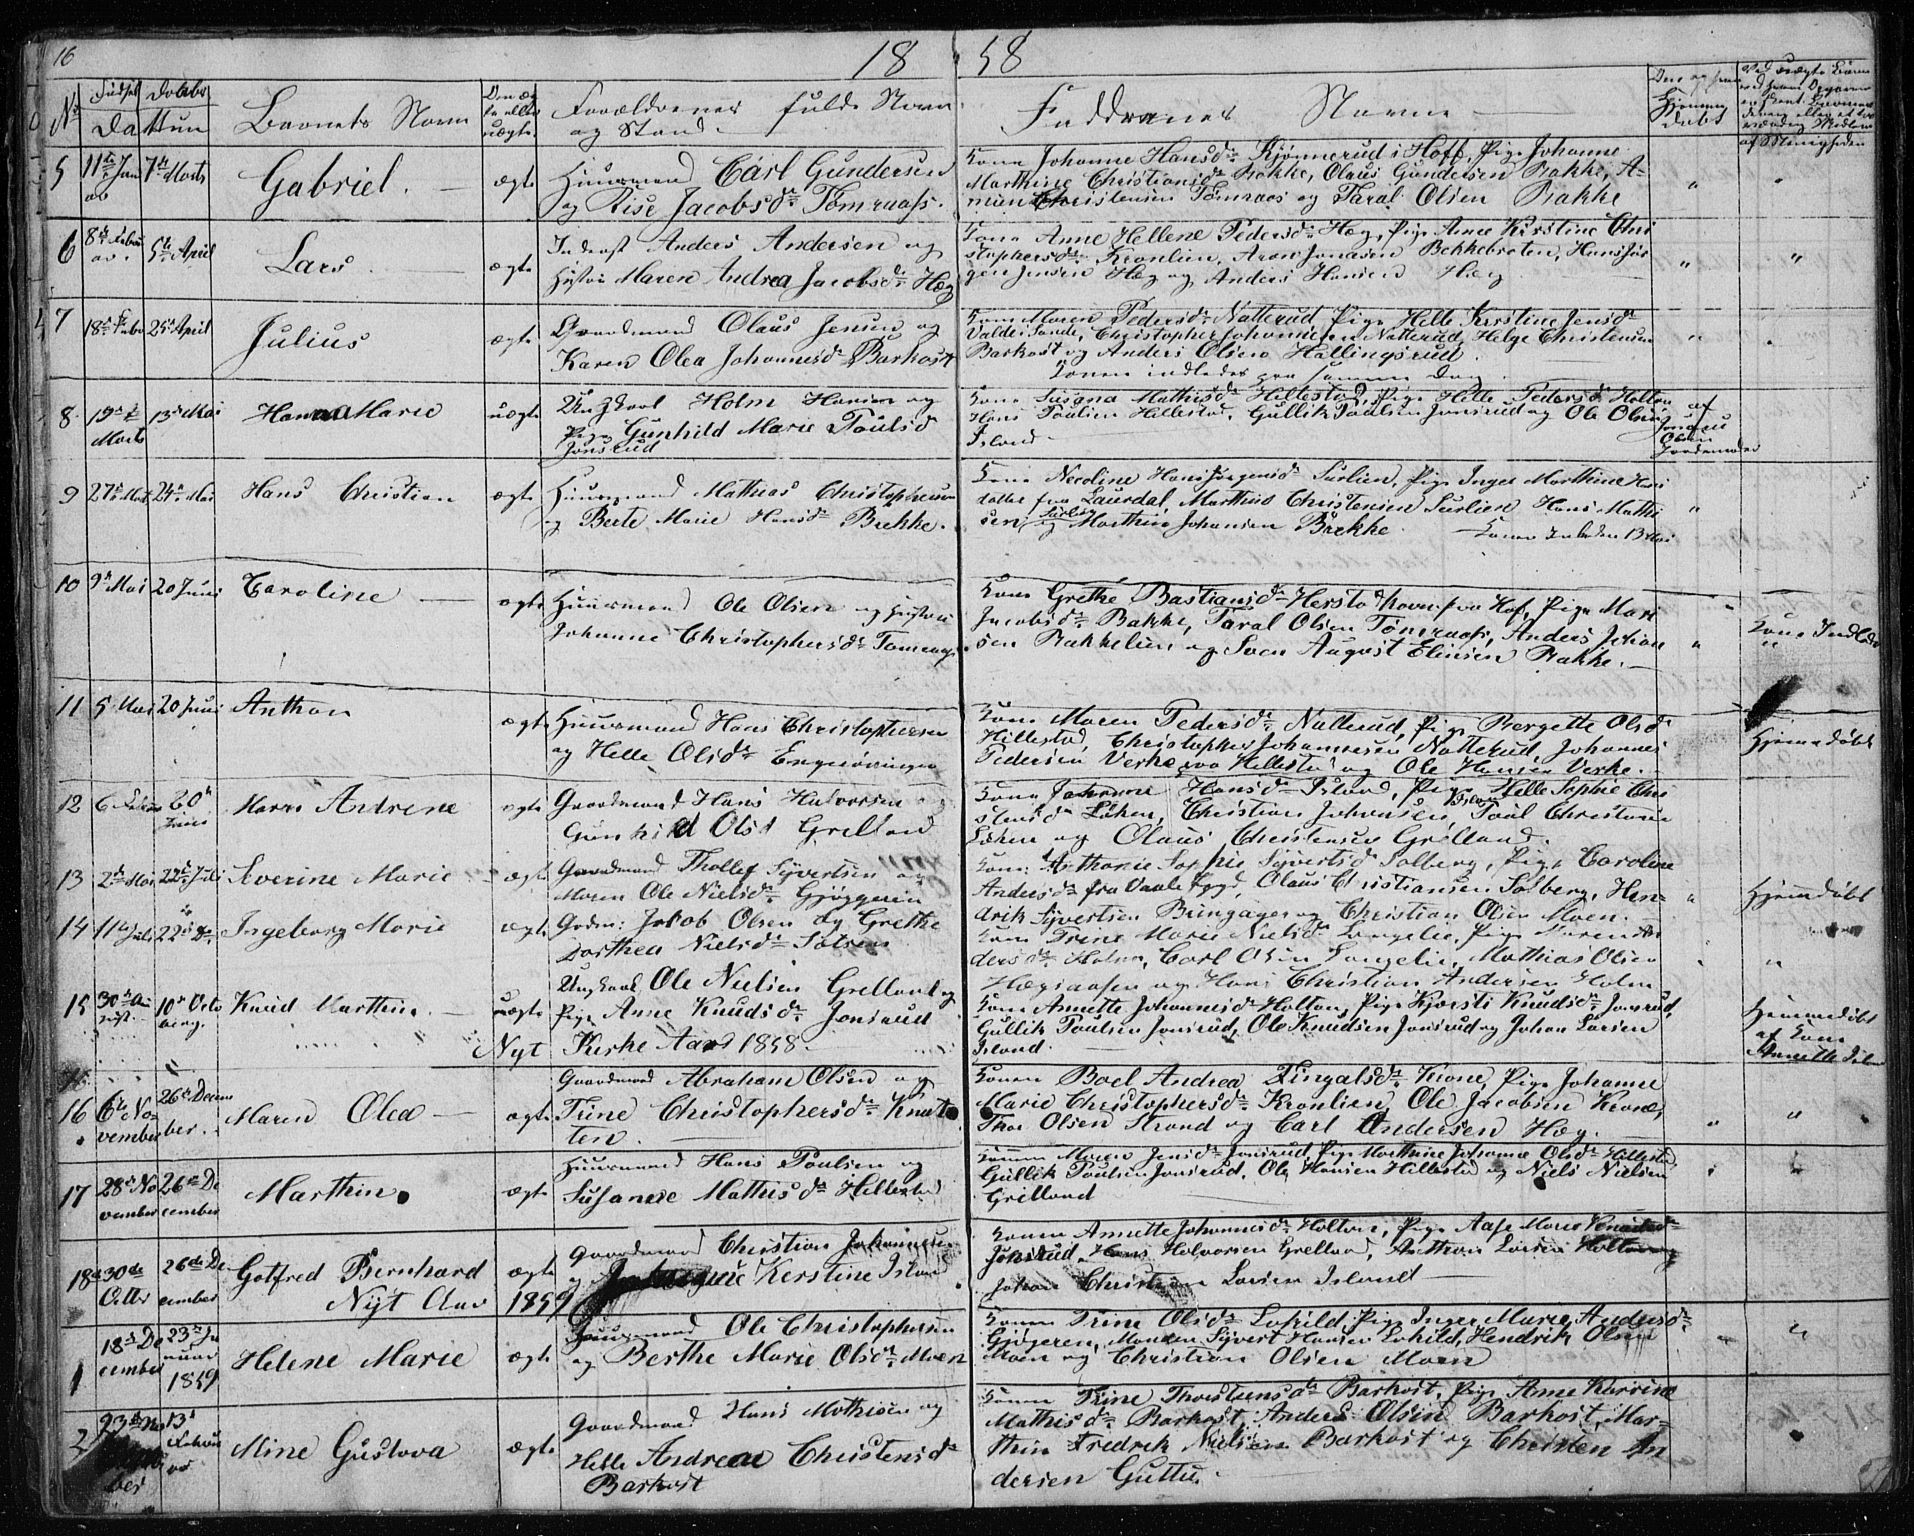 16
18 58
No Fødsels Daabs Barnets Navn Forældrenes fulde Navn Faddernes Navne
Datum og Stand.
5 11te Jan 7de Marts Gabriel. ægte Huusmand Carl Gundersen
og Lise Jacobsdr Tømraass.
Kone Johanne Hansdr Kjønnerud i Hoff, Pige Johanne
Marthine Christiansdr Bakke, Olaus Gundersen Bakke, A-
Christensen Tømraas og Taral Olsen Bakke
6 8de Febru 5te April Lars ægte Inderst Anders Andersen og
Hustru Maren Andrea Jacobsdr Hæg
Kone Anne Hellene Pedersdr Hæg, Pige Anne Kirstine Chri
stophersdr Kronlien, Aron Jonasen Bekkebraten, Hans Jør
gen Jensen Hæg og Anders Hansen Hæg
7 18de Febr 25de April Julius ægte Gaardmand Olaus Jensen og
Karen Olea Johannesdr Barkost
Kone Maren Pedersdr Natterud Pige Helle Kirstine Jensdr
Valdri Sande, Christopher Johannesen Natterud, Helge Christensen
Barkost og Anders Olsen Hallingsrud.
Konen indledet paa samme Dag
8 19de Marts 13de Mai Hanna Marie uægte Ungkarl Holm Hansen og
Pige Gunhild Marie Poulsd
Jonsrud
Kone Susanna Mathisdr Hillestad, Pige Helle Pedersdr Holton
Hans Paulsen Hillestad, Gullik Paulsen Jonsrud og Ole Olsen
Island
af
Olsen
Jordemoder
9 27de Mar 24de Mai Hans Christian ægte Huusmand Mathias Christophersen
og Berte Marie Hansdr Brekke.
Kone Nicoline Hans Jørgensdr Surlien, Pige Inger Marthine Hans
datter fra Laurdal, Marthius Christensen Surlien Hans Mathi
sen Surlien og Marthin Johansen Brekke. Konen Indleden 13 Mai
10 9de Mai 20 Juni Caroline ægte Huusmand Ole Olsen og Hustru
Johanne Christophersdr Tomraas
Kone Grethe Bastiansdr Herstad Kone fra Hof, Pige Mari
Jacobsdr Bakke, Taral Olsen Tømraass, Anders Johan
sen Bakkelien og Sven August Elinsen Bakke.
Kone Indledet
11 5 Mai 20 Juni Anthon ægte Huusmand Hans Christophersen
og Helle Olsdr
Kone Maren Pedersdr Natterud, Pige Bergette Olsdr
Hillestad, Christopher Johannesen Natterud, Johannes
Pedersen Verke fra Hillestad og Ole Hansen Verke.
Hjemmedøbt
12 6 20de Juni Maren Andrine ægte Gaardmand Hans Halvorsen
Gunhild Olsd Grelland
Kone Johanne Hansdr Island, Pige Helle Sophie Chri
stensdr Løken, Christian Johansen, Poul Christian
Løken og Olaus Christensen Grelland
13 2de Mai 22de Juli Severine Marie ægte Gaardmand Thollef Syvertsen og
Maren Ole Nielsdr Gjøggeren
Kone: Anthonie Sophie Syvertsdr Solberg, Pige Caroline
Andersdr fra Vaale Bygd, Olaus Christiansen Solberg, Hen-
drik Syvertsen Bungager og Christian Olsen Moen.
Hjemmedøbt
14 11te Juli 22de Ingeborg Marie ægte Gadm: Jakob Olsen og Grethe
Dorthea Nielsdr
Kone Trine Marie Nielsdr Langelie, Pige Maren An
dersdr Holm, Carl Olsen Langelie, Mathias Olsen
og Hans Christian Andersen Holm
15 30de August 10de Octo Knud Marthin. uægte Ungkarl Ole Nielsen Grelland og
Pige Anne Knudsdr Jonsrud
Kone Annette Johannesdr Holton, Pige Kjersti Knudsdr Jonsrud,
Gullik Poulsen Jonsrud, Ole Knudsen Jonsrud og Johan Larsen
Island
Hjemmedøbt
af Kone
Annette
Nyt Kirke Aar 1858
16 6te No- 26de Decem Maren Olea ægte Gaardmand Abraham Olsen og
vember ber. Trine Christophersdr Knat
ten.
Konen Boel Andrea Fingalsdr Krone, Pige Johanne
Marie Christophersdr Kronlien, Ole Jacobsen Krone,
Thor Olsen Strand og Carl Andersen Hæg.
17 28de No 26de De Marthin ægte Huusmand Hans Poulsen og
vember cember Susanne Mathisdr Hillestad
Konen Maren Jensdr Jonsrud, Pige Marthine Johanne Olsdr Hillestad
Gullik Poulsen Jonsrud, Ole Hansen Hillestad og Niels Nielsen
Grelland
18 30de 26de De Gotfred Bernhard ægte Gaardmand Christian Johannesen
Octbr cember og Kerstine Island
Nyt Aar 1859
Konen Annette Johannesdr Holton, Pige Aase Marie
Jonsrud, Hans Halvorsen Grelland, Anthon Larsen Holton og
Johan Christian Larsen Island
1 18de De 23de Ja Helene Marie ægte Huusmand Ole Christophersen
cember nuar 1859 og Berthe Marie Olsdr Moen
Konen Trine Olsdr Lohild, Pige Inger Marie Andersdr
Gingeren, Manden Syvert Hansen Lohild, Hendrik Olsen
Moen og Christian Olsen Moen
2 23de No 13de Februar Mine Gustava ægte Gaardmand Hans Mathisen og
ber Helle Andrea Christensdr
Barkost
Konen Trine Thorstensdr Barkost, Pige Anne Karrine
Mathisdr Barkost, Anders Olsen Barkost, Mar-
thin Fredrik Nielsen Barkost og Christen An
dersen Guttu.